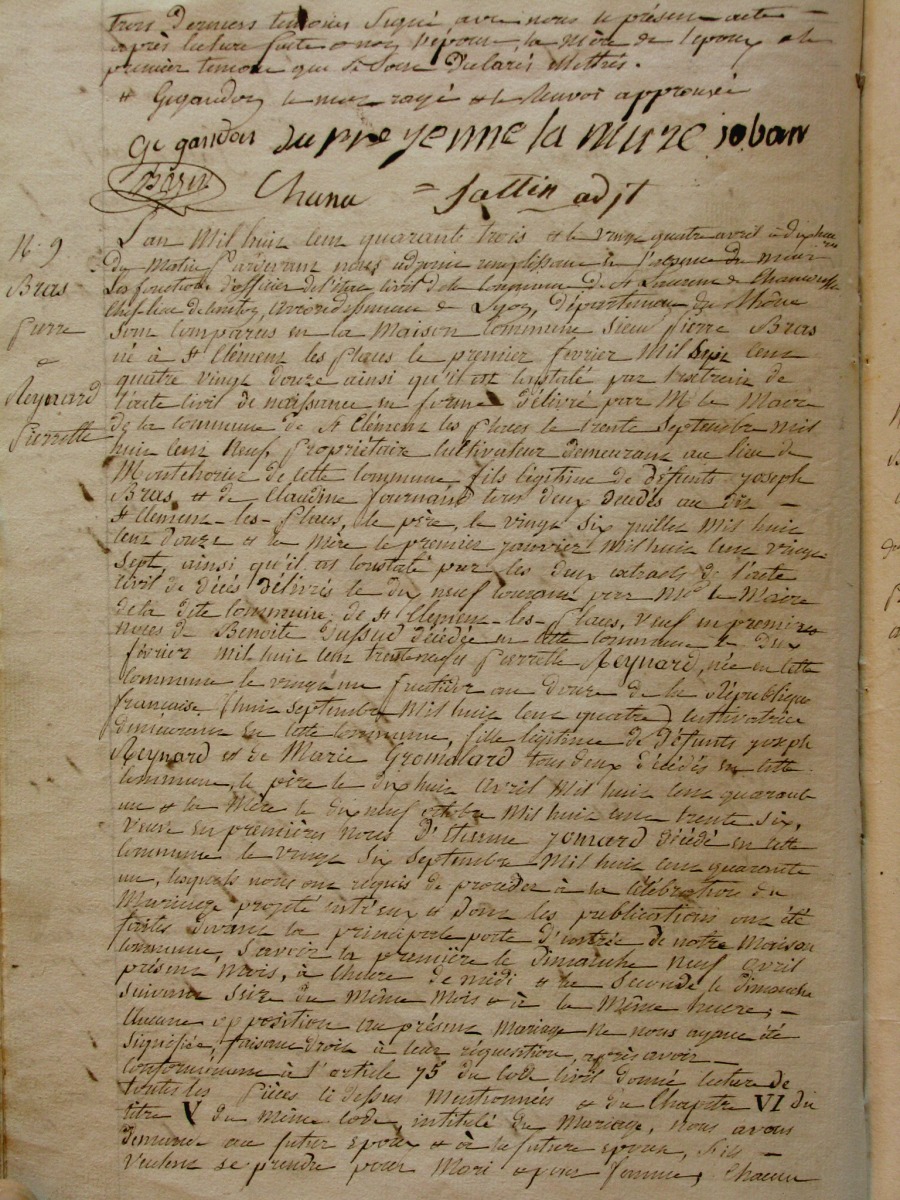 trois derniers temoins signé avec nous le présent acte
après lecture faite & non l'époux, la mère de l'époux & le
premier temoin que de soin déclarés illettrés.
# Gigandon le mot rayé & le renvoi approuvé
Gigandon Dupré yenne la mure joban
Bazin Chana = fattin adjt
N. 9
Bras
Pierre
&
Reynard
Pierrette
L'an Mil huit cent quarante trois & le vingt quatre avril à dix heures
du Matin pardevant nous adjoint remplissant en l'absence du maire
les fonctions d'officier de l'état civil de la commune de St Laurent de Chamousset
chef-lieu de canton, arrondissement de Lyon, département du Rhône
sont comparus en la Maison Commune sieur Pierre Bras
né à St Clément les places le premier février Mil Sept cent
quatre vingt douze ainsi qu'il est constaté par l'extrait de
l'acte civil de naissance en forme délivré par Mr le Maire
de la commune de St Clément les places le trente Septembre Mil
huit cent Neuf, propriétaire cultivateur demeurant au lieu de
de cette commune, fils légitime de défunts joseph
Bras, & de Claudine fournand tous deux décédés au dit –
St Clément-les-places, le père, le vingt six juillet Mil huit
cent douze & la mère le premier janvier Mil huit cent vingt
sept, ainsi qu'il est constaté par les deux extraits de l'acte
civil de décès délivrés le dix neuf courant par Mr le Maire
de la dite commune de St Clément-les-places, veuf en premières
noces de Benoite Dussud décédée en cette commune le dix
février mil huit cent trente neuf & Pierrette Reynard, née en cette
commune le vingt un fructidor an douze de la République
française (huit septembre Mil huit cent quatre) cultivatrice
demeurant en cette commune, fille légitime de défunts joseph
Reynard & de Marie Gromolard tous deux décédés en cette
commune, le père le dix huit avril Mil huit cent quarante
un & la Mère le dix neuf octobre Mil huit cent trente six,
veuve en premières noces d'Etienne jomard décédé en cette
commune le vingt six septembre Mil huit cent quarante
un, lesquels nous ont requis de procéder à la célébration du
Mariage projeté entr'eux & dont les publications ont été
faites devant la principale porte d'entrée de notre Maison
commune, savoir la première le dimanche neuf avril
présent mois, à l'heure de midi & la seconde le dimanche
suivant seize du même mois & à la même heure, –
Aucune opposition au présent mariage ne nous ayant été
signifiée, faisant droit à leur réquisition, après avoir –
conformément à l'article 75 du code civil donné lecture de
toutes les pièces ci dessus mentionnées & du Chapitre VI du
titre V du même code, intitulé du Mariage, nous avons
demandé au futur époux & à la future épouse, s'ils –
veulent se prendre pour Mari & pour femme, chacun